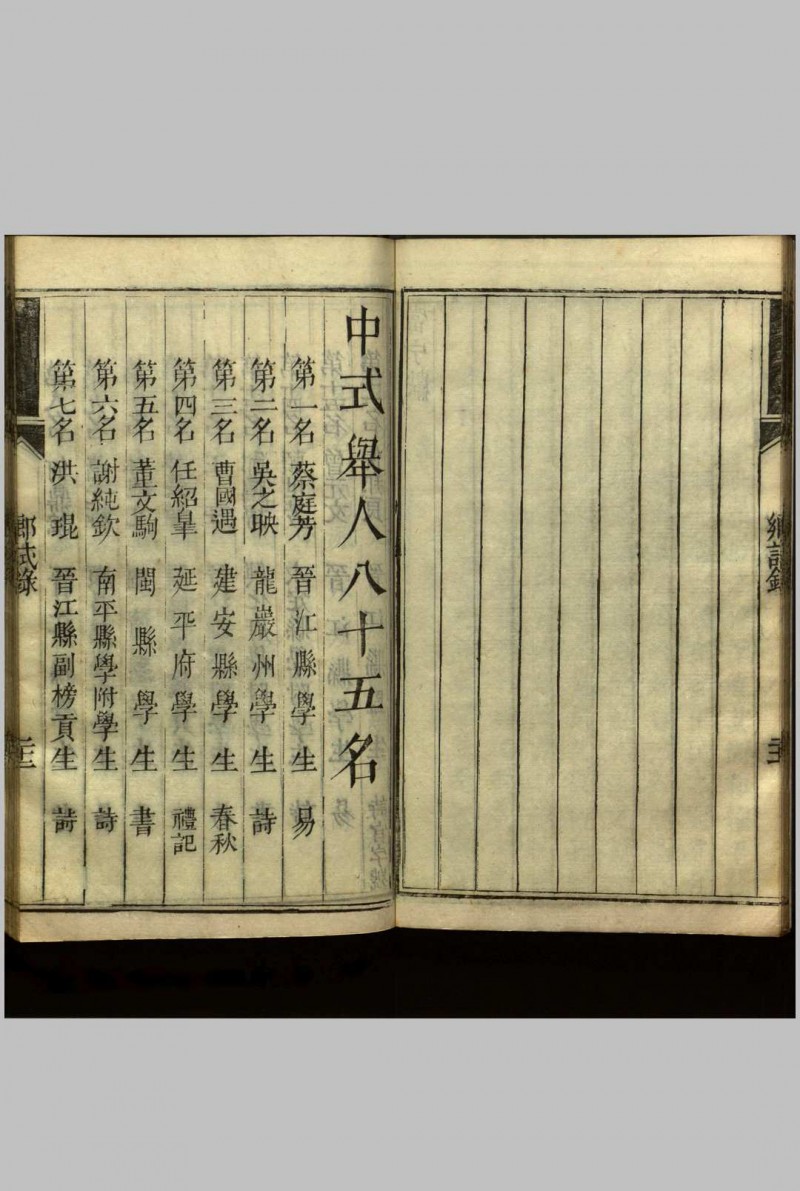 鄉試錄
中式舉人八十五名
第一名 蔡庭芳 晉江縣學生 易
第二名 吳之映 龍巖州學生 詩
第三名 曹國遇 建安縣學生 春秋
第四名 任紹皐 延平府學生 禮記
第五名 董文駒 閩縣學生 書
第六名 謝純欽 南平縣學附學生 詩
第七名 洪琨 晉江縣副榜貢生 詩
鄉試錄